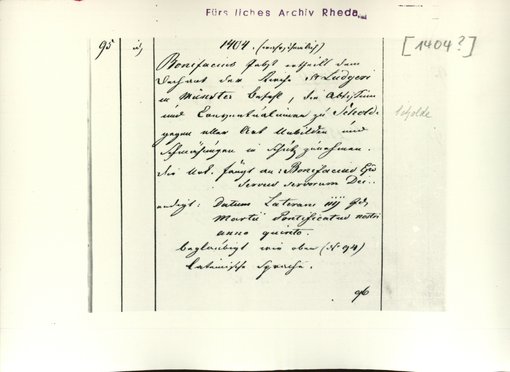 Fürstliches Archiv Rheda
95
1404. (wahrscheinlich)
[1404?]
Bonifacius Pabst ertheilt dem
Dechant der Kirche St Ludgeri
in Münster Befehl, die Abtissinn
und Conventualinnen zu
gegen aller Art Unbilden und
Schmähungen in Schutz zu nehmen.
Die Urk. fängt an: Bonifacius Eps
Servus servorum Dei..
endigt: Datum Laterani iiij
Martii Pontificatus nostri
anno quinto.
beglaubigt wie oben (N 94)
Lateinische Sprache.
96